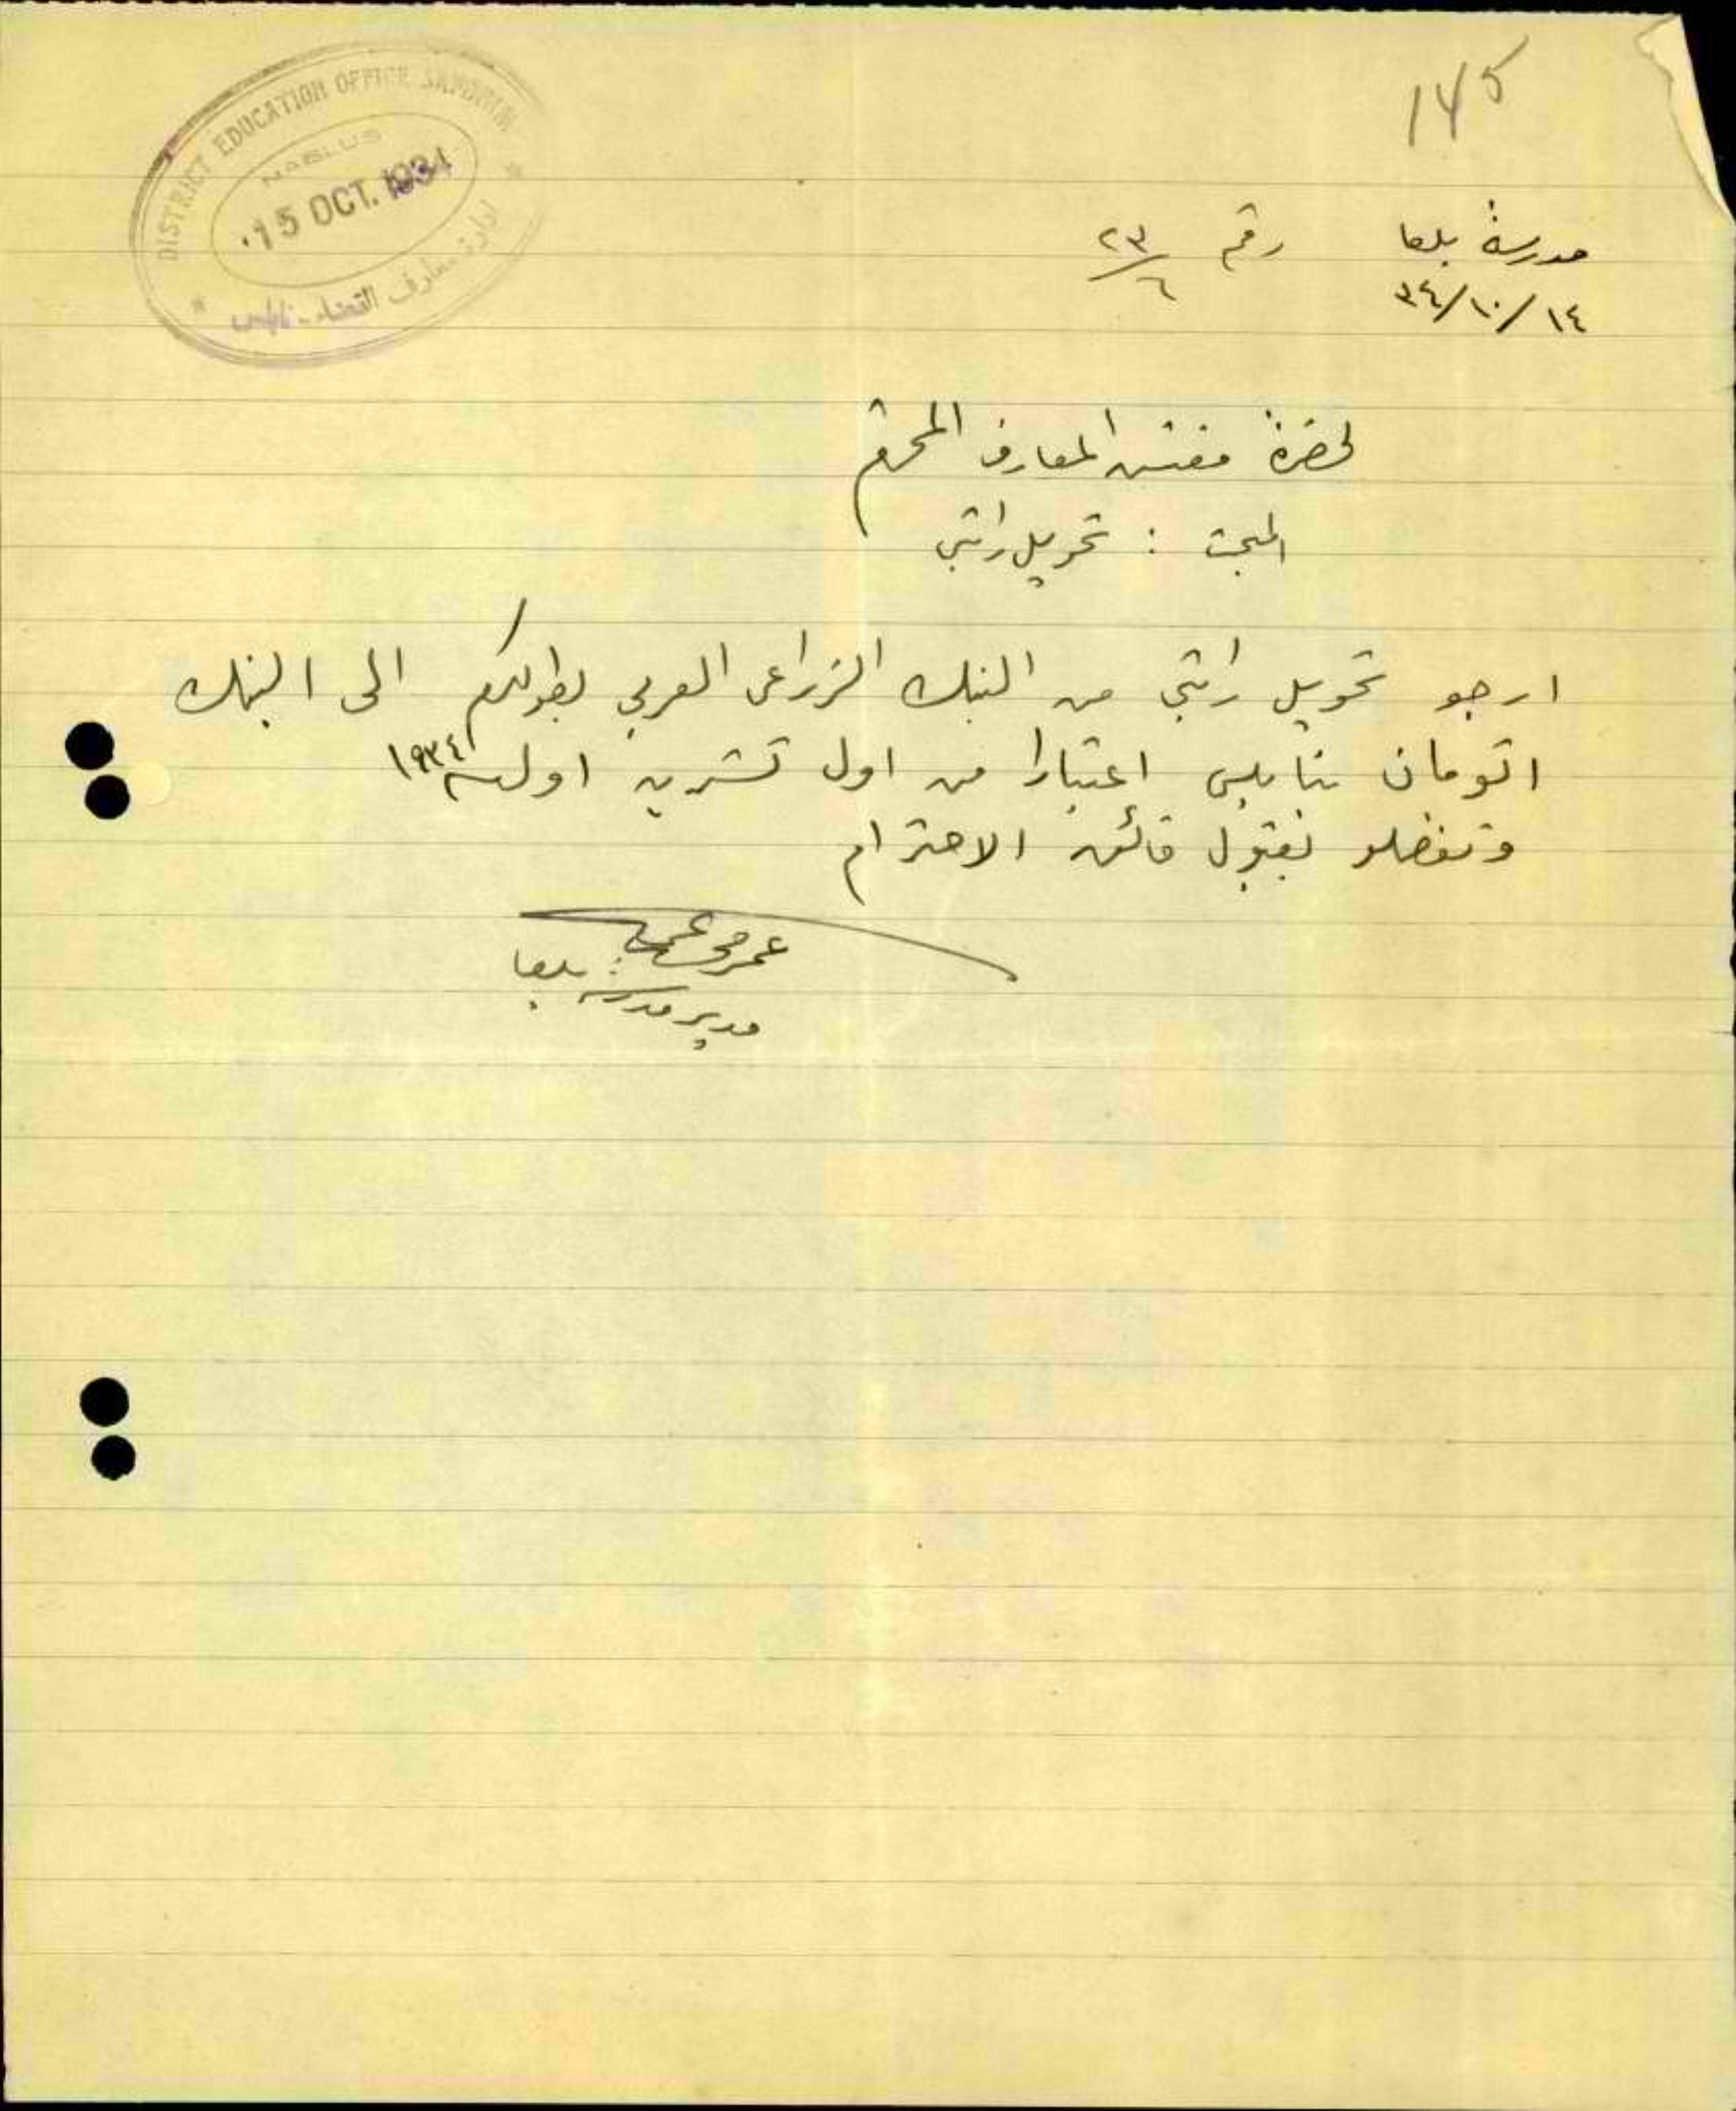 145
DISTRICT EDUCATION OFFICE SAMARIA
NABLUS
15 OCT. 1934
ادارة معارف القضاء - نابلس
مدرسة بلعا رقم ٢٣/٦
١٤/١٠/٣٤
لحضرة مفتش المعارف المحترم
المبحث : تحويل راتبي
ارجو تحويل راتبي من البنك الزراعي العربي بطولكرم الى البنك
اتومان بنابلس اعتبارا من اول تشرين اول سنة ١٩٣٤
وتفضلو بقبول فائق الاحترام
عمر
مدير مدرسة بلعا